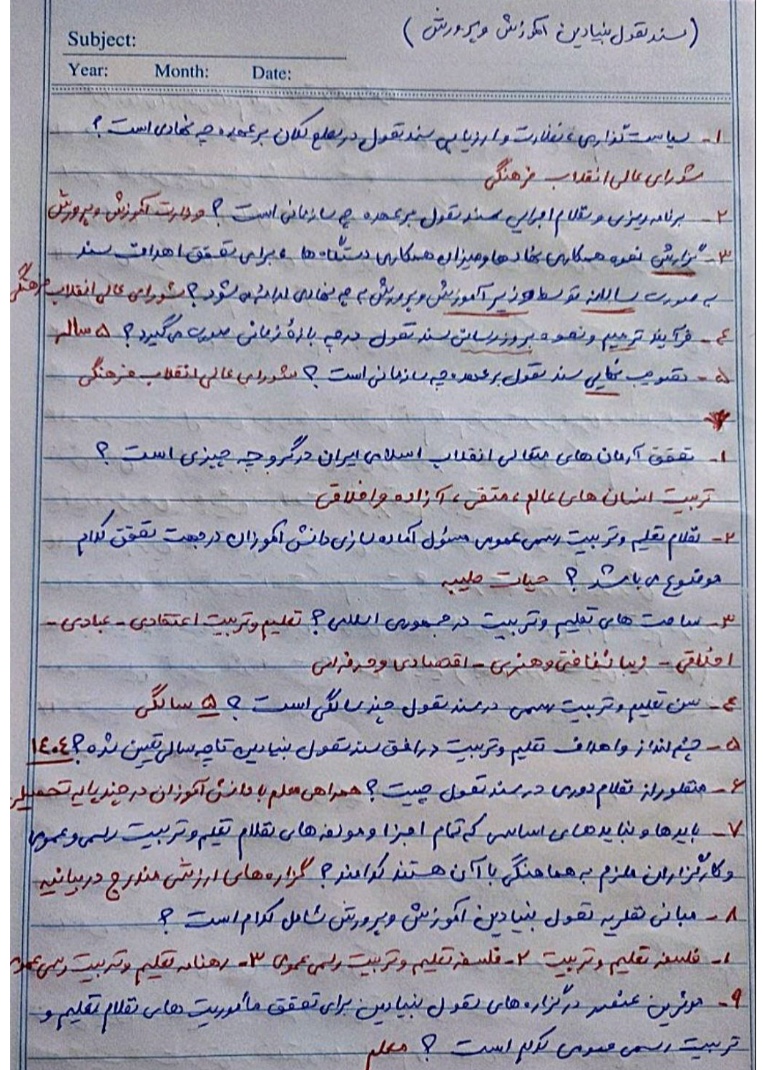 (سند تحول بنیادین آموزش و پرورش)
Subject:
Year: Month: Date:
۱- سیاست گذاری، نظارت و ارزیابی سند تحول در سطح کلان بر عهده چه نهادی است؟
شورای عالی انقلاب فرهنگی
۲- برنامه ریزی و نظام اجرایی سند تحول بر عهده چه سازمانی است؟ وزارت آموزش و پرورش
۳- گزارش نحوه همکاری نهادها و میزان همکاری دستگاه ها، برای تحقق اهداف سند
به صورت سالانه توسط وزیر آموزش و پرورش به چه نهادی ارائه می شود؟ شورای عالی انقلاب فرهنگی
۴- فرآیند ترمیم و نحوه بروزرسانی سند تحول در چه بازهٔ زمانی صورت می گیرد؟ ۵ ساله
۵- تصویب نهایی سند تحول بر عهده چه سازمانی است؟ شورای عالی انقلاب فرهنگی
۱- تحقق آرمان های متعالی انقلاب اسلامی ایران در گرو چه چیزی است؟
تربیت انسان های عالم، متقی، آزاده و اخلاقی
۲- نظام تعلیم و تربیت رسمی عمومی مسئول آماده سازی دانش آموزان در جهت تحقق کدام
موضوع می باشد؟ حیات طیبه
۳- ساحت های تعلیم و تربیت در جمهوری اسلامی؟ تعلیم و تربیت اعتقادی - عبادی -
اخلاقی - زیبا شناختی و هنری - اقتصادی و حرفه ای
۴- سن تعلیم و تربیت رسمی در سند تحول چند سالگی است؟ ۵ سالگی
۵- چشم انداز و اهداف تعلیم و تربیت در افق سند تحول بنیادین تا چه سالی تعیین شده؟ ۱۴۰۴
۶- منظور از نظام دوری در سند تحول چیست؟ همراهی معلم با دانش آموزان در چند پایه تحصیلی
۷- بایدها و نبایدهای اساسی که تمام اجزا و مولفه های نظام تعلیم و تربیت رسمی و عمومی
و کارگزاران ملزم به هماهنگی با آن هستند کدامند؟ گزاره های ارزشی مندرج در بیانیه
۸- مبانی نظریه تحول بنیادین آموزش و پرورش شامل کدام است؟
۱- فلسفه تعلیم و تربیت ۲- فلسفه تعلیم و تربیت رسمی عمومی ۳- رهنامه تعلیم و تربیت رسمی عمو
۹- موثرین عنصر در گزاره های تحول بنیادین برای تحقق مأموریت های نظام تعلیم و
تربیت رسمی عمومی کدام است؟ معلم